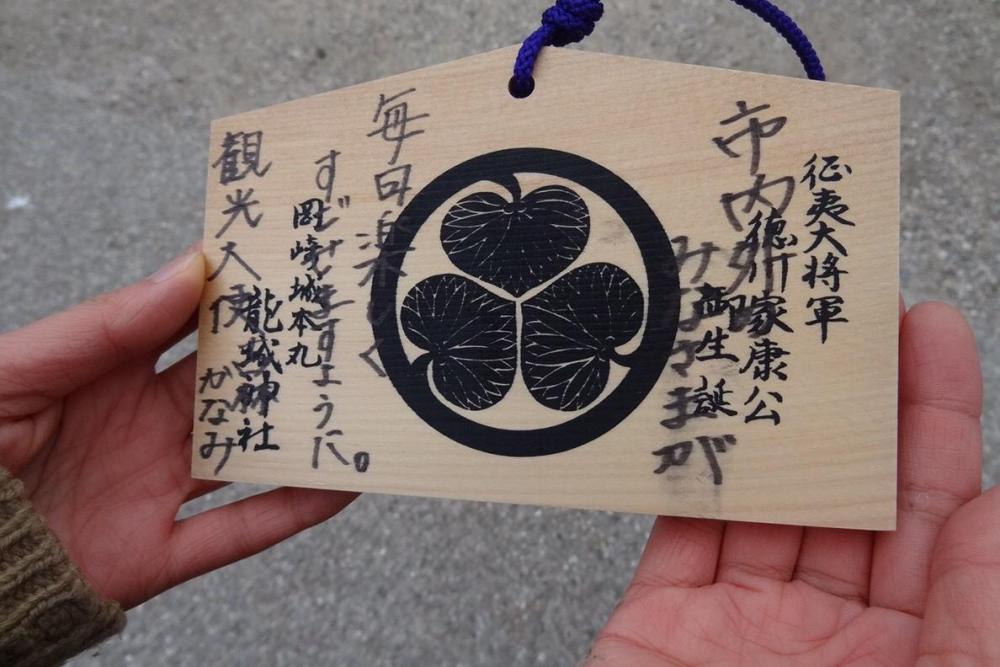 征夷大将軍
徳川家康公
御生誕
岡崎城本丸
龍城神社
市内外
みなさまが
毎日楽しく
すごせますように。
観光大使 かなみ